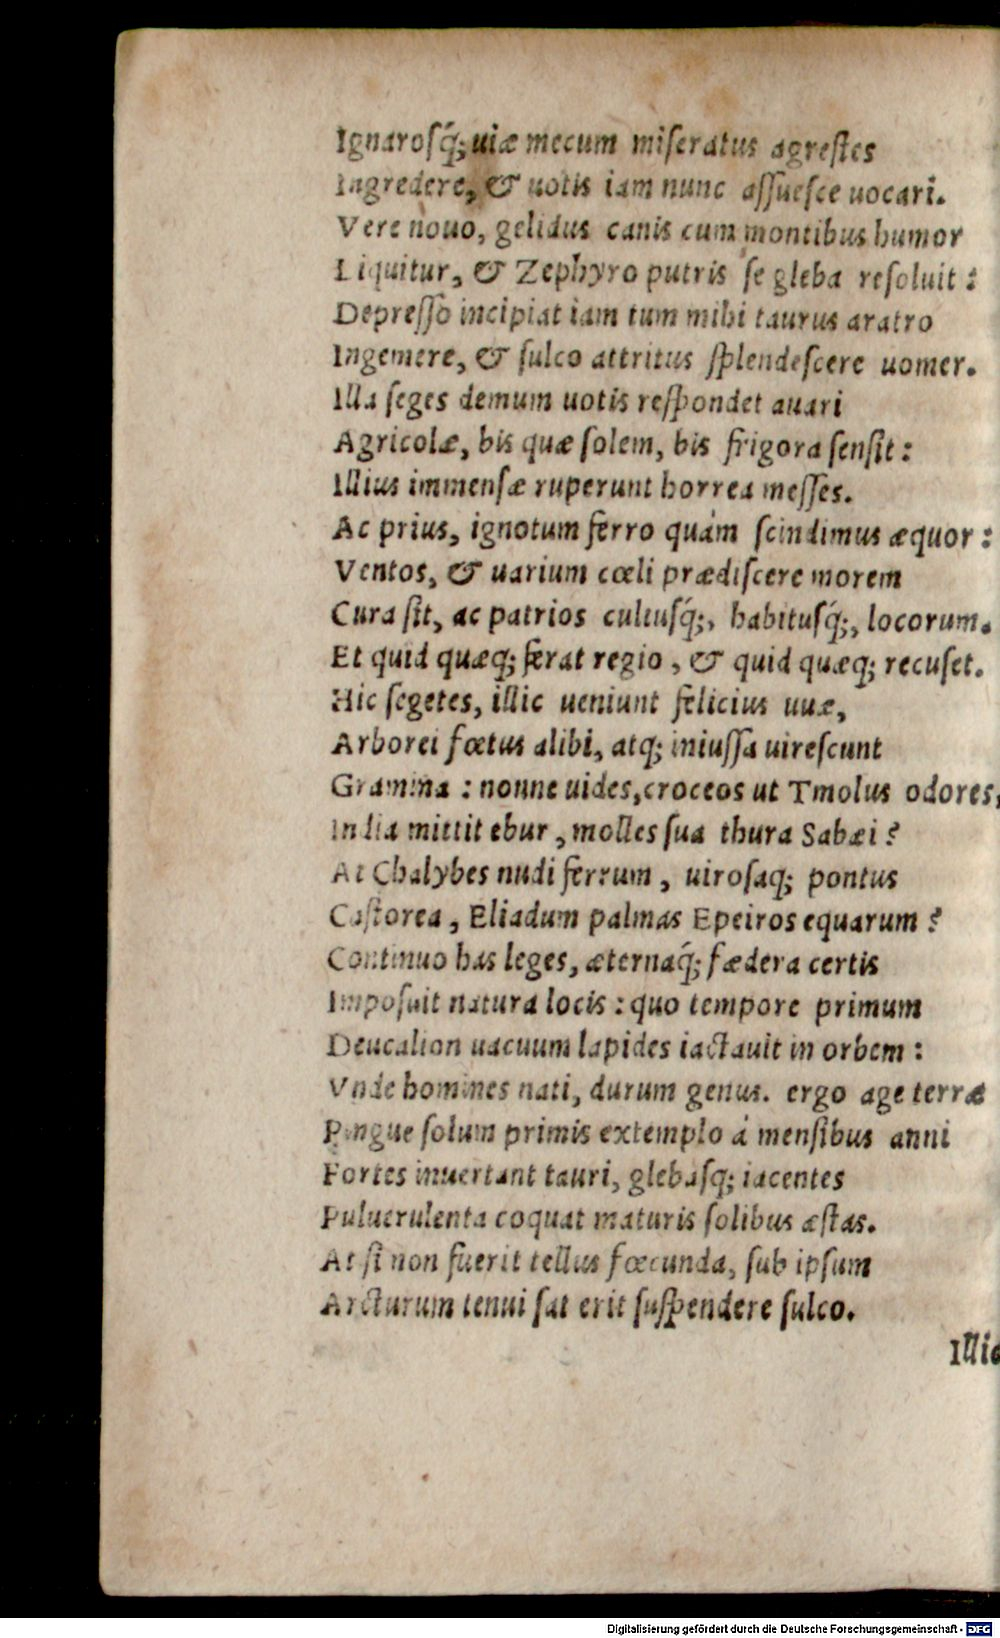 Ignarosq́; uiæ mecum miseratus agrestes
Ingredere, & uotis iam nunc assuesce uocari.
Vere nouo, gelidus canis cum montibus humor
Liquitur, & Zephyro putris se gleba resoluit:
Depresso incipiat iam tum mihi taurus aratro
Ingemere, & sulco attritus splendescere uomer.
Illa seges demum uotis respondet auari
Agricolæ, bis quæ solem, bis frigora sensit:
Illius immensæ ruperunt horrea messes.
Ac prius, ignotum ferro quám scindimus æquor:
Ventos, & uarium cœli prædiscere morem
Cura sit, ac patrios cultusq́;, habitusq́;, locorum.
Et quid quæq; ferat regio, & quid quæq; recuset.
Hic segetes, illic ueniunt felicius uuæ,
Arborei fœtus alibi, atq; iniussa uirescunt
Gramina: nonne uides, croceos ut Tmolus odores,
India mittit ebur, molles sua thura Sabæi?
At Chalybes nudi ferrum, uirosaq; pontus
Castorea, Eliadum palmas Epeiros equarum?
Continuo has leges, æternaq́; fædera certis
Imposuit natura locis: quo tempore primum
Deucalion uacuum lapides iactauit in orbem:
Vnde homines nati, durum genus. ergo age terræ
Pingue solum primis extemplo á mensibus anni
Fortes inuertant tauri, glebasq; iacentes
Puluerulenta coquat maturis solibus æstas.
At si non fuerit tellus fœcunda, sub ipsum
Arcturum tenui sat erit suspendere sulco.
Illic
Digitalisierung gefördert durch die Deutsche Forschungsgemeinschaft - DFG